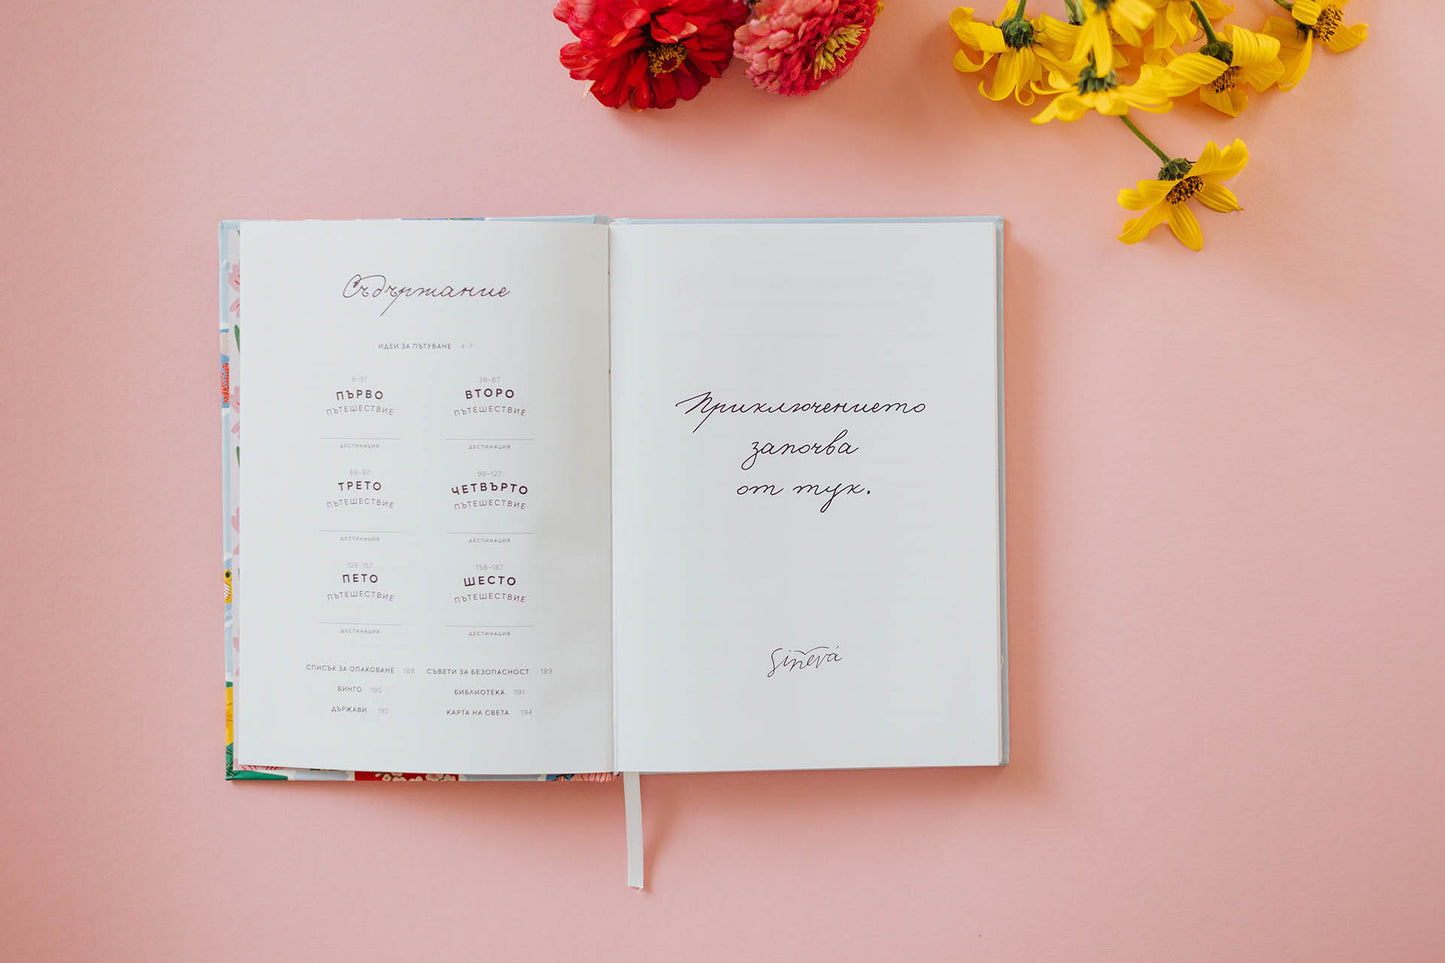 Съдържание
ИДЕИ ЗА ПЪТУВАНЕ 4-7
8-37
ПЪРВО
ПЪТЕШЕСТВИЕ
ДЕСТИНАЦИЯ
38-67
ВТОРО
ПЪТЕШЕСТВИЕ
ДЕСТИНАЦИЯ
68-97
ТРЕТО
ПЪТЕШЕСТВИЕ
ДЕСТИНАЦИЯ
98-127
ЧЕТВЪРТО
ПЪТЕШЕСТВИЕ
ДЕСТИНАЦИЯ
128-157
ПЕТО
ПЪТЕШЕСТВИЕ
ДЕСТИНАЦИЯ
158-187
ШЕСТО
ПЪТЕШЕСТВИЕ
ДЕСТИНАЦИЯ
СПИСЪК ЗА ОПАКОВАНЕ 188
СЪВЕТИ ЗА БЕЗОПАСНОСТ 189
БИНГО 190
БИБЛИОТЕКА 191
ДЪРЖАВИ 192
КАРТА НА СВЕТА 194
Приключението
започва
от тук.
Sinevá